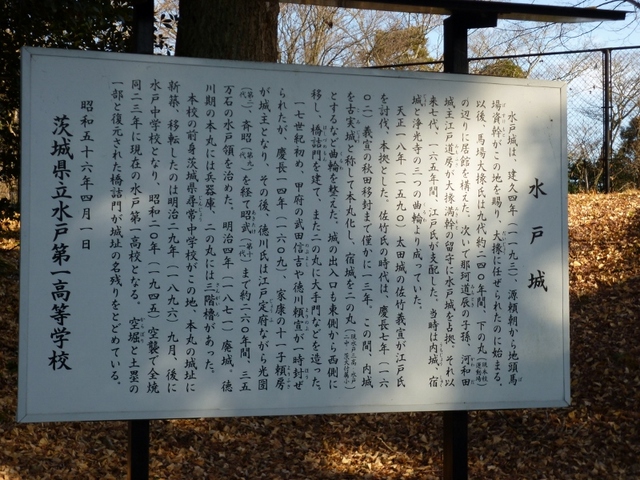 水戸城
水戸城は、建久四年(一一九三)、源頼朝から地頭馬
場資幹がこの地を賜り、大掾に任ぜられたのに始まる。
以後、馬場大掾氏は九代約二四〇年間、下の丸
の辺りに居館を構えた。次いで那珂道辰の子孫、河和田
城主江戸道房が大掾満幹の留守に水戸城を占拠、それ以
来七代、一六五年間、江戸氏が支配した。当時は内城、宿
城と浄光寺の三つの曲輪より成っていた。
天正一八年(一五九〇)太田城の佐竹義宣が江戸氏
を討伐、本拠とした。佐竹氏の時代は、慶長七年(一六
〇二)義宣の秋田移封まで僅かに一三年、この間、内城
を古実城と称して本丸化し、宿城を二の丸
とするなど曲輪を整えた。城の出入口も東側から西側に
移し、橋詰門を建て、また二の丸に大手門などを造った。
一七世紀初め、甲府の武田信吉や徳川頼宣が一時封ぜ
られたが、慶長一四年(一六〇九)、家康の十一子頼房
が城主となり、その後、徳川氏は江戸定府ながら光圀
(第二代)、斉昭(第九代)を経て昭武(第十一代)まで約二六〇年間、三五
万石の水戸領を治めた。明治四年(一八七一)廃城、徳
川期の本丸には兵器庫、二の丸には三階櫓があった。
本校の前身茨城県尋常中学校がこの地、本丸の城址に
新築、移転したのは明治二九年(一八九六)九月、後に
水戸中学校となり、昭和二〇年(一九四五)空襲で全焼
同二三年に現在の水戸第一高校となる。空堀と土塁の
一部と復元された橋詰門が城址の名残りをとどめている。
昭和五十六年四月一日
茨城県立水戸第一高等学校